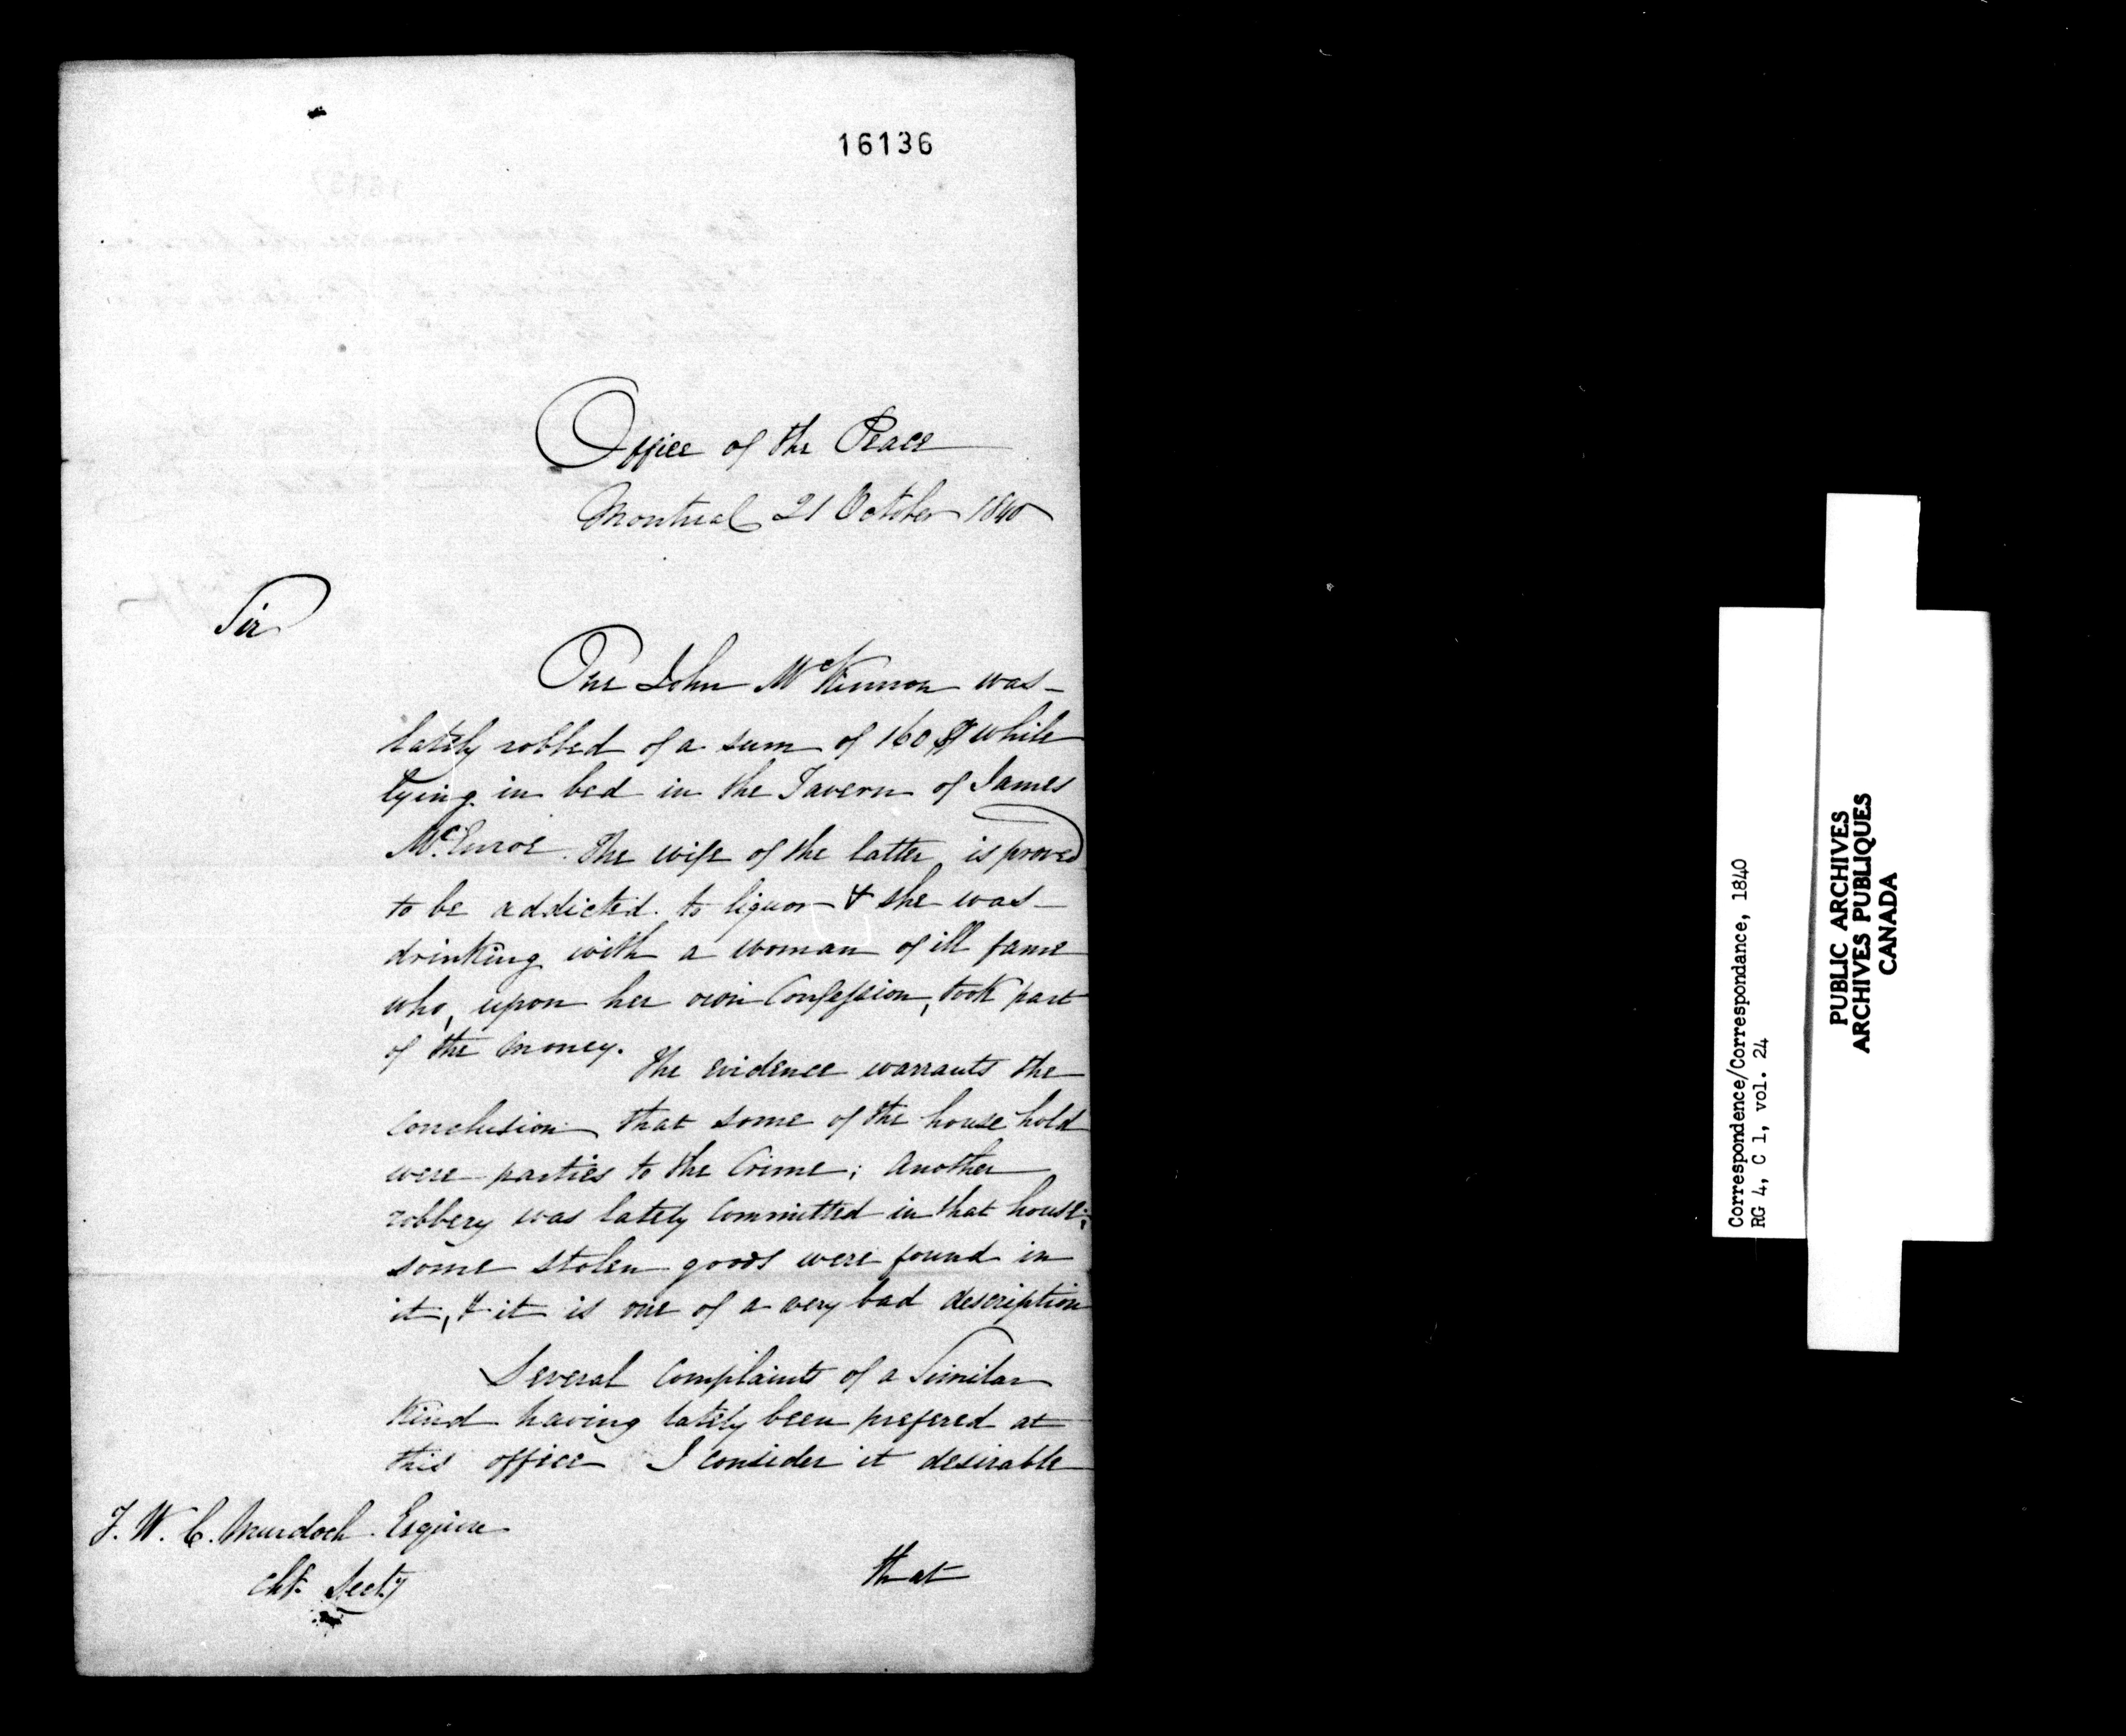 16136
Office of the Peace
Montreal 21 October 1840
Sir
One John McKinnon was
lately robbed of a sum of 160 $ while
lying in bed in the Tavern of James
McEnroe. The wife of the latter is proved
to be addicted to liquor & she was
drinking with a woman of ill fame
who, upon her own Confession, took part
of the money.
The evidence warrants the
conclusion that some of the house hold
were parties to the Crime; another
robbery was lately Committed in that house;
some stolen goods were found in
it, & it is one of a very bad description
Several Complaints of a Similar
kind having lately been prefered at
this office I consider it desirable
T. W. C. Murdoch Esquire
Chf. Secty
that
Correspondence/Correspondance, 1840
RG 4, C 1, vol. 24
PUBLIC ARCHIVES
ARCHIVES PUBLIQUES
CANADA